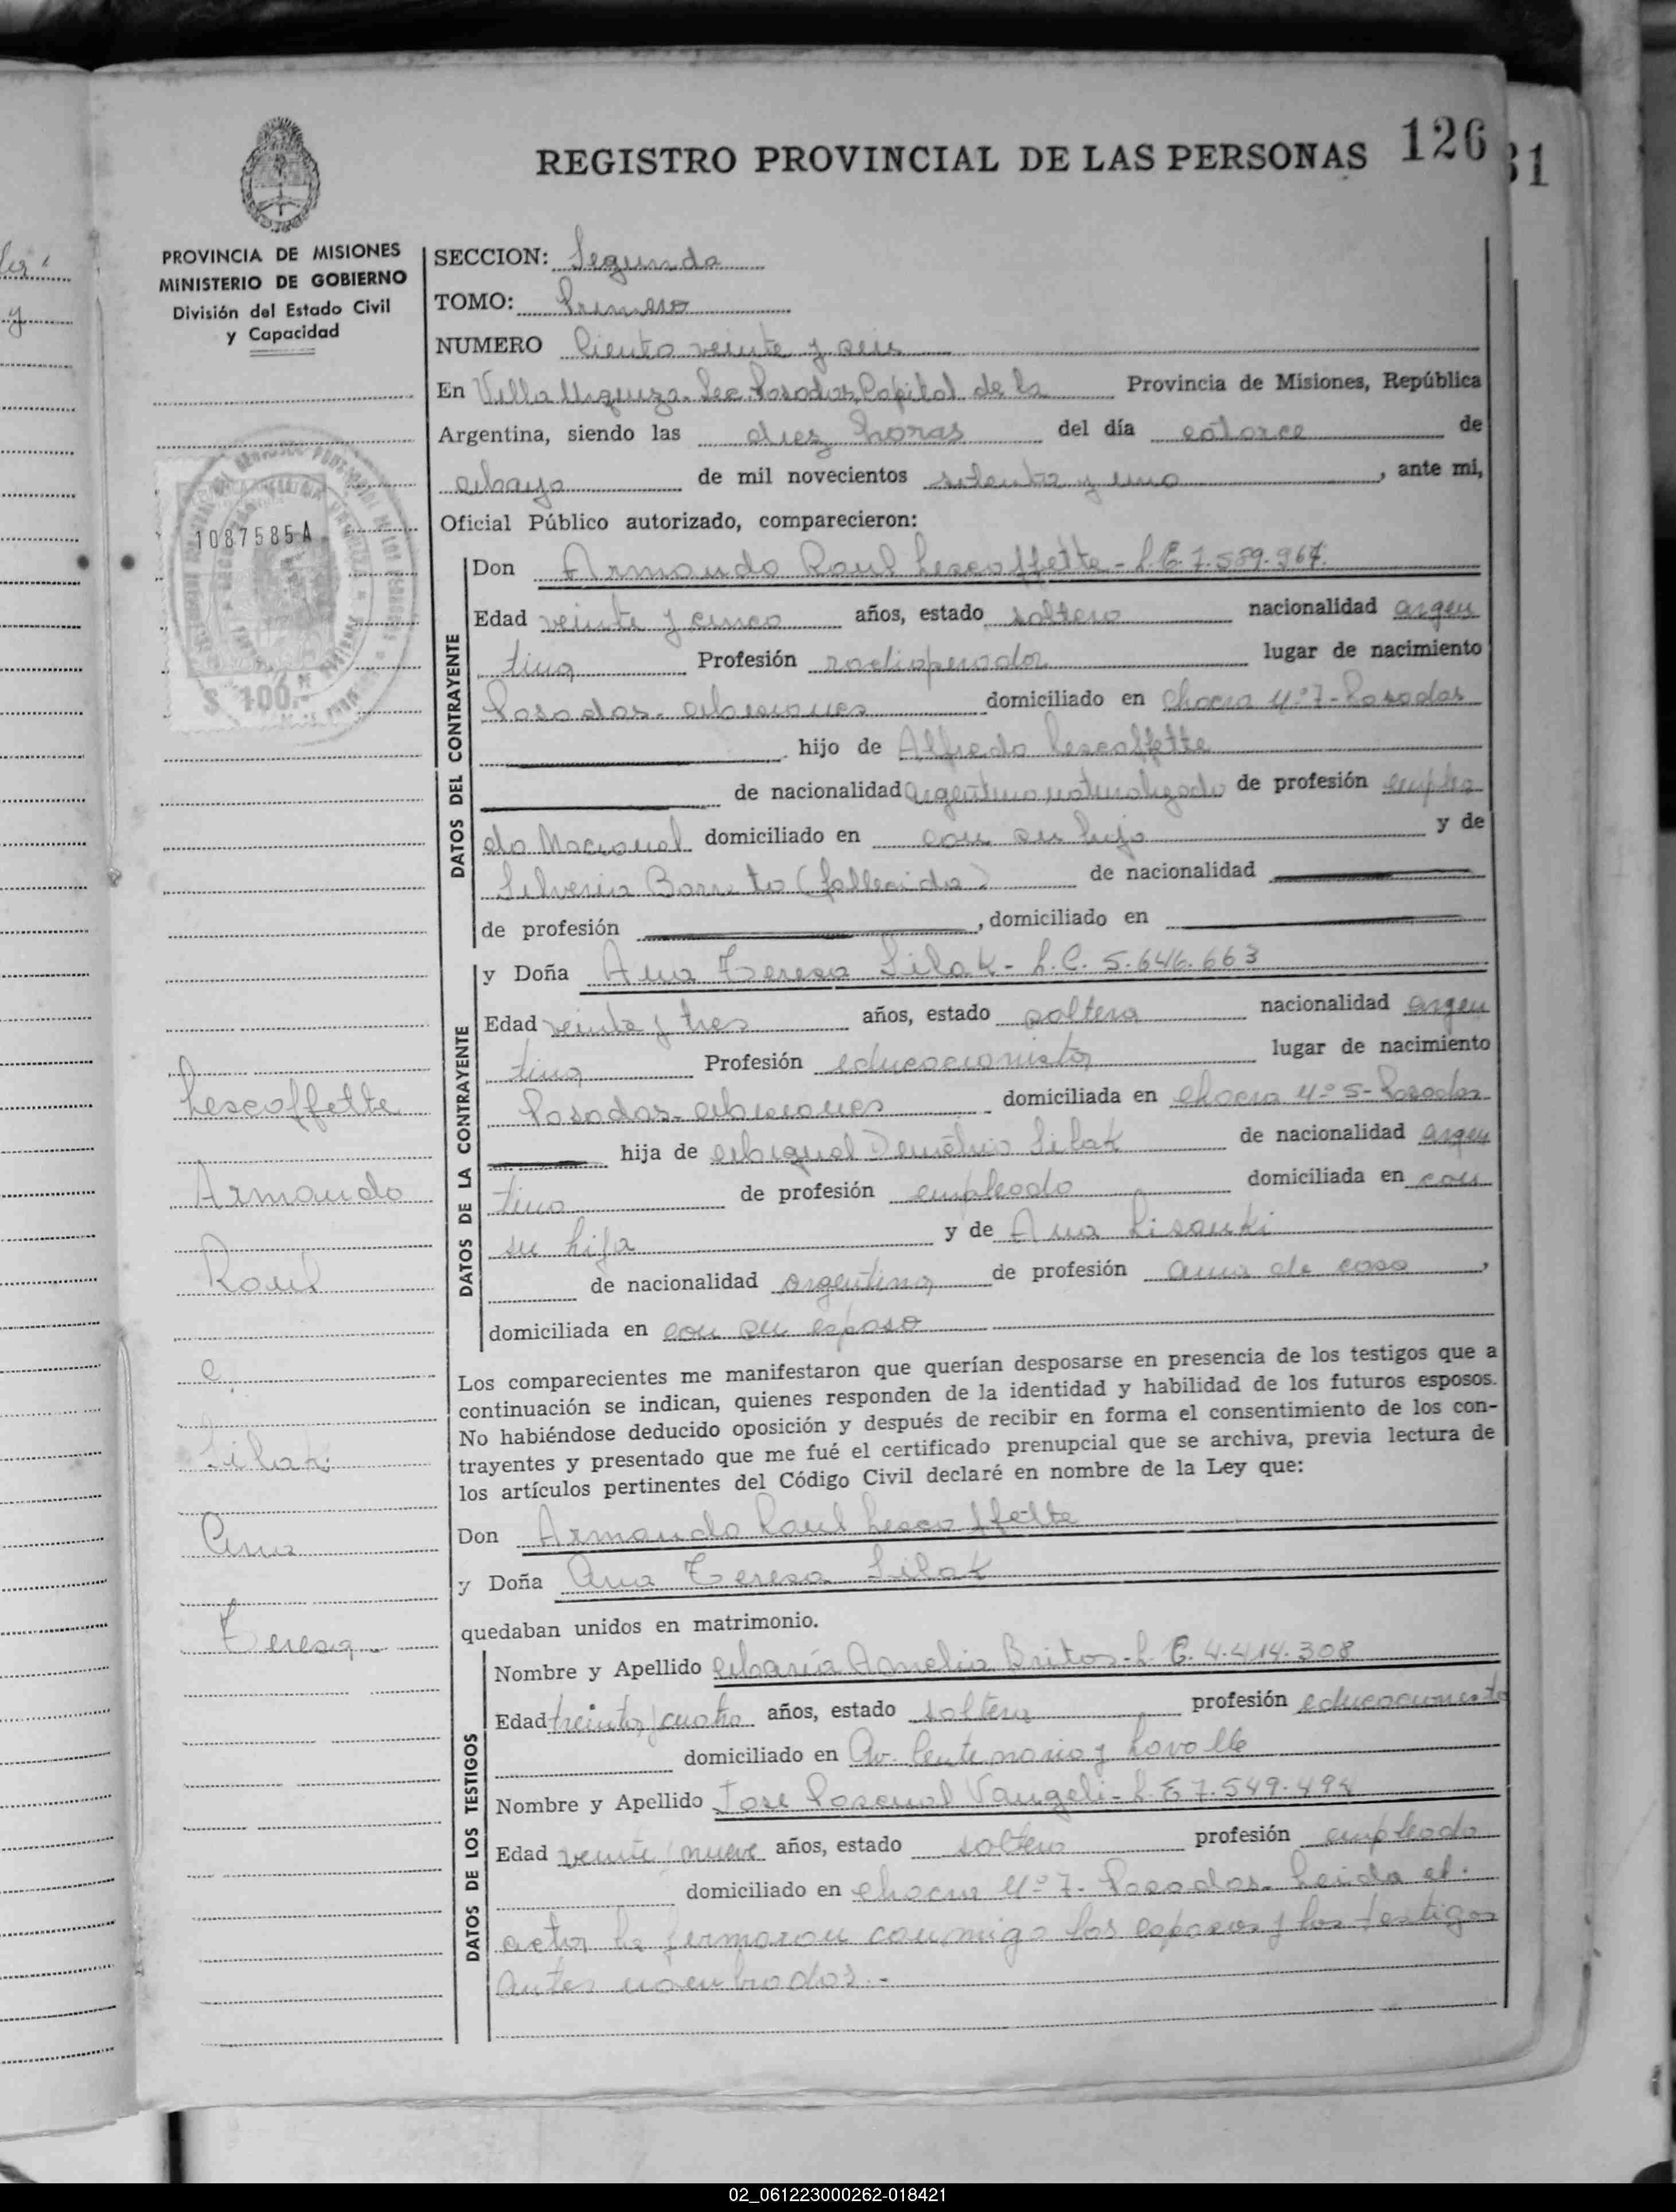 REGISTRO PROVINCIAL DE LAS PERSONAS 126
31
PROVINCIA DE MISIONES
MINISTERIO DE GOBIERNO
División del Estado Civil
y Capacidad
1087585A
$ 100.-
Lescoffette
Armando
Raul
e
Silak
Ana
Teresa
SECCION: Segunda
TOMO: Primero
NUMERO Ciento veinte y seis
En Villa Urquiza. Sec. Posadas, Capital de la Provincia de Misiones, República
Argentina, siendo las diez horas del día catorce de
Mayo de mil novecientos setenta y uno, ante mi,
Oficial Público autorizado, comparecieron:
DATOS DEL CONTRAYENTE
Don Armando Raul Lescoffette - L.E. 7.589.967.
Edad veinte y cinco años, estado soltero nacionalidad argen
tina Profesión radioperador lugar de nacimiento
Posadas - Misiones domiciliado en Chacra Nº 7 - Posadas
hijo de Alfredo Lescoffette
de nacionalidad argentino naturalizado de profesión emplea
do Nacional domiciliado en con su hijo y de
Silveria Barreto (fallecida) de nacionalidad
de profesión , domiciliado en
DATOS DE LA CONTRAYENTE
y Doña Ana Teresa Silak - L.C. 5.646.663
Edad veinte y tres años, estado soltera nacionalidad argen
tina Profesión educacionista lugar de nacimiento
Posadas - Misiones domiciliada en Chacra Nº 5 - Posadas
hija de Miguel Demetrio Silak de nacionalidad argen
tino de profesión empleado domiciliada en con
su hija y de Ana Lisauki
de nacionalidad argentina de profesión ama de casa ,
domiciliada en con su esposo
Los comparecientes me manifestaron que querían desposarse en presencia de los testigos que a
continuación se indican, quienes responden de la identidad y habilidad de los futuros esposos.
No habiéndose deducido oposición y después de recibir en forma el consentimiento de los con-
trayentes y presentado que me fué el certificado prenupcial que se archiva, previa lectura de
los artículos pertinentes del Código Civil declaré en nombre de la Ley que:
Don Armando Raul Lescoffette
y Doña Ana Teresa Silak
quedaban unidos en matrimonio.
DATOS DE LOS TESTIGOS
Nombre y Apellido María Amelia Britos - L.C. 4.414.308
Edad treinta y cuatro años, estado soltera profesión educacionista
domiciliado en Av. Centenario y Lavalle
Nombre y Apellido Jose Pascual Vangeli - L.E 7.549.494
Edad veinte y nueve años, estado soltero profesión empleado
domiciliado en Chacra Nº 7. Posadas. Leida el
acta la firmaron conmigo los esposos y los testigos
antes nombrados. -
02_061223000262-018421